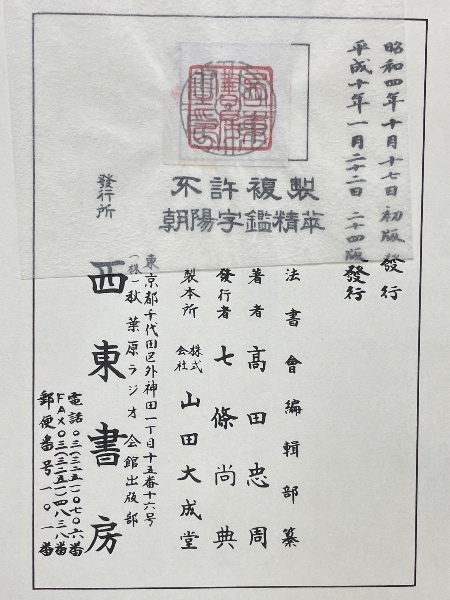 昭和四年十月十七日初版發行
平成十年一月二十二日二十四版發行
不許複製
朝陽字鑑精萃
法書會編輯部纂
著者 高田忠周
發行者 七條尚典
製本所 株式会社 山田大成堂
東京都千代田区外神田一丁目十五番十六号
(株)秋葉原ラジオ会館出版部
發行所 西東書房
電話〇三(三二五一)〇七〇六番
FAX〇三(三二五一)四八三八番
郵便番号一〇一番